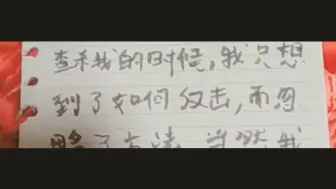 查杀我的时候,我只想
到了如何反击,而忽
略了方法 当然我